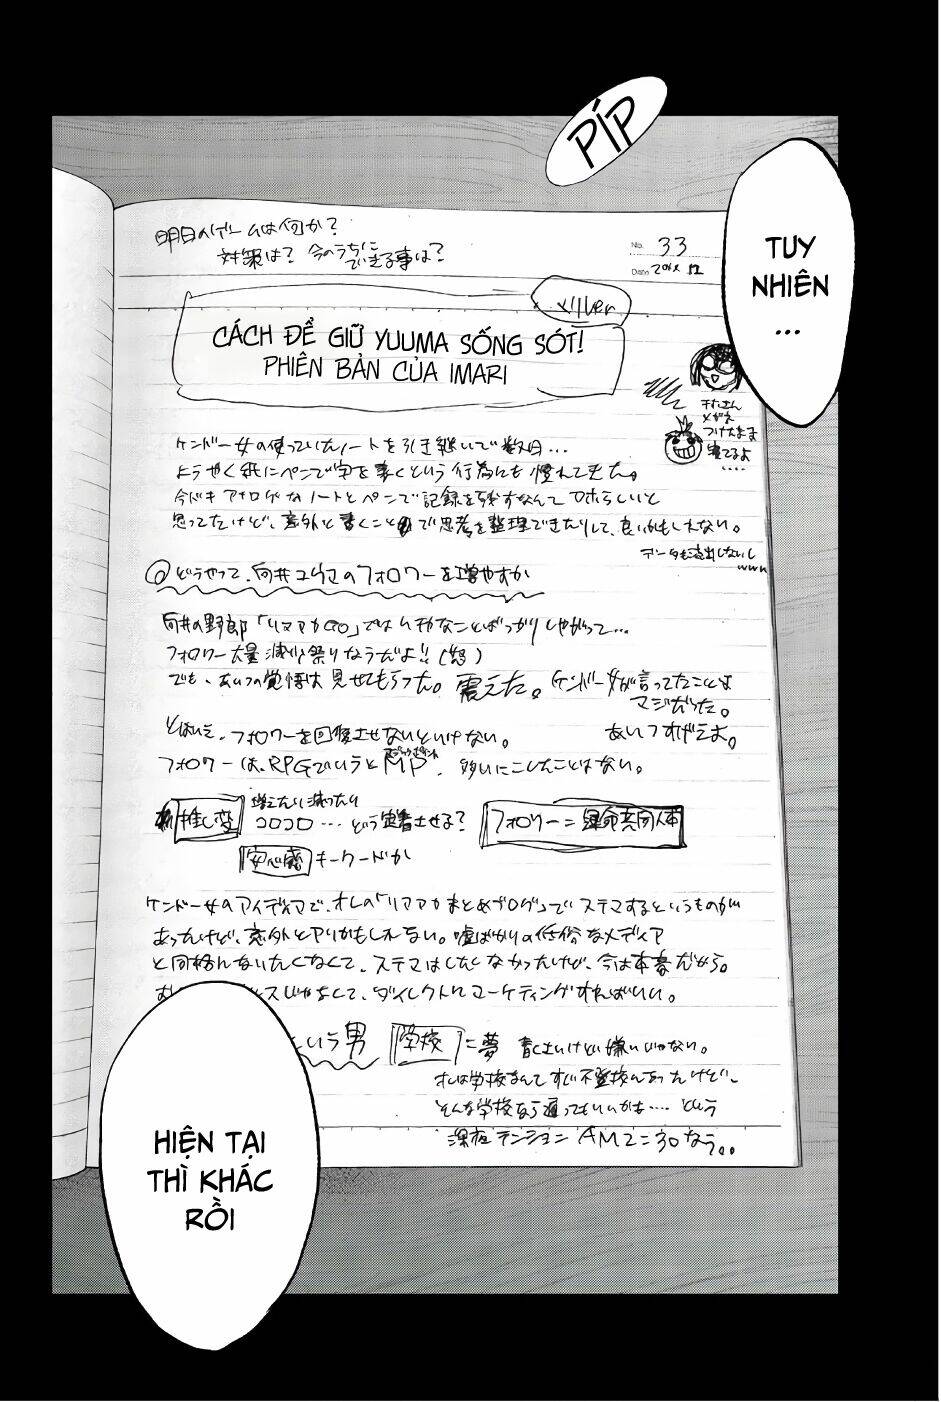 PÍP
TUY
NHIÊN
...
明日のゲームは何か？
対策は？ 今のうちに
できる事は？
No. 33
Date
CÁCH ĐỂ GIỮ YUUMA SỐNG SÓT!
PHIÊN BẢN CỦA IMARI
メガネ
つけたまま
寝てるよ
....
ケンドー女の使っていたノートを引き継いで数日...
ようやく紙にペンで字を書くという行為にも慣れてきた。
今どきアナログなノートとペンで記録を残すなんてアホらしいと
思ってたけど、意外と書くことで思考を整理できたりして、良いかもしれない。
データも流出しないし
www
◎どうやって、向井ユウマのフォロワーを増やすか
向井の野郎「リアアカGO」ではムチャなことばっかりしやがって...
フォロワー大量減少祭りなうだよ!!(怒)
でも、あいつの覚悟は見せてもらった。震えた。ケンドー女が言ってたことは
マジだった。
あいつすげえよ。
とはいえ、フォロワーを回復させないといけない。
フォロワーは、RPGでいうとMP、多いにこしたことはない。
推し変
増えたり減ったり
コロコロ...どう定着させる？
フォロワー＝運命共同体
安心感 キーワードか
ケンドー女のアイディアで、オレの「リアアカまとめブログ」でステマするというものが
あったけど、意外とアリかもしれない。嘘ばかりの低俗なメディア
と同格になりたくなくて、ステマはしたくなかったけど、今は本音だから。
じゃなくて、ダイレクトにマーケティングすればいい。
という男 学校＝夢 青くさいけど嫌いじゃない。
オレは学校なんてすぐ不登校になったけど、
そんな学校なら通ってもいいかも.... という
深夜テンション AM2:30なう。。
HIỆN TẠI
THÌ KHÁC
RỒI